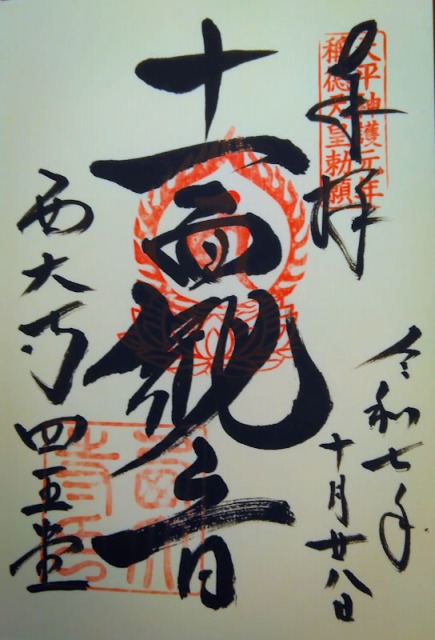 奉拝
天平神護元年
稱徳天皇勅願
令和七年
十月廿八日
十一面観音
西大寺四王堂